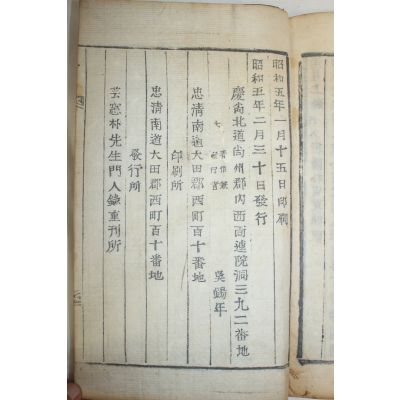 昭和五年一月十五日印刷
昭和五年二月三十日發行
慶尙北道尙州郡內西面連院洞三九二番地
吳錫年
忠淸南道大田郡西町百十番地
印刷所
忠淸南道大田郡西町百十番地
發行所
芸窓朴先生門人錄重刊所